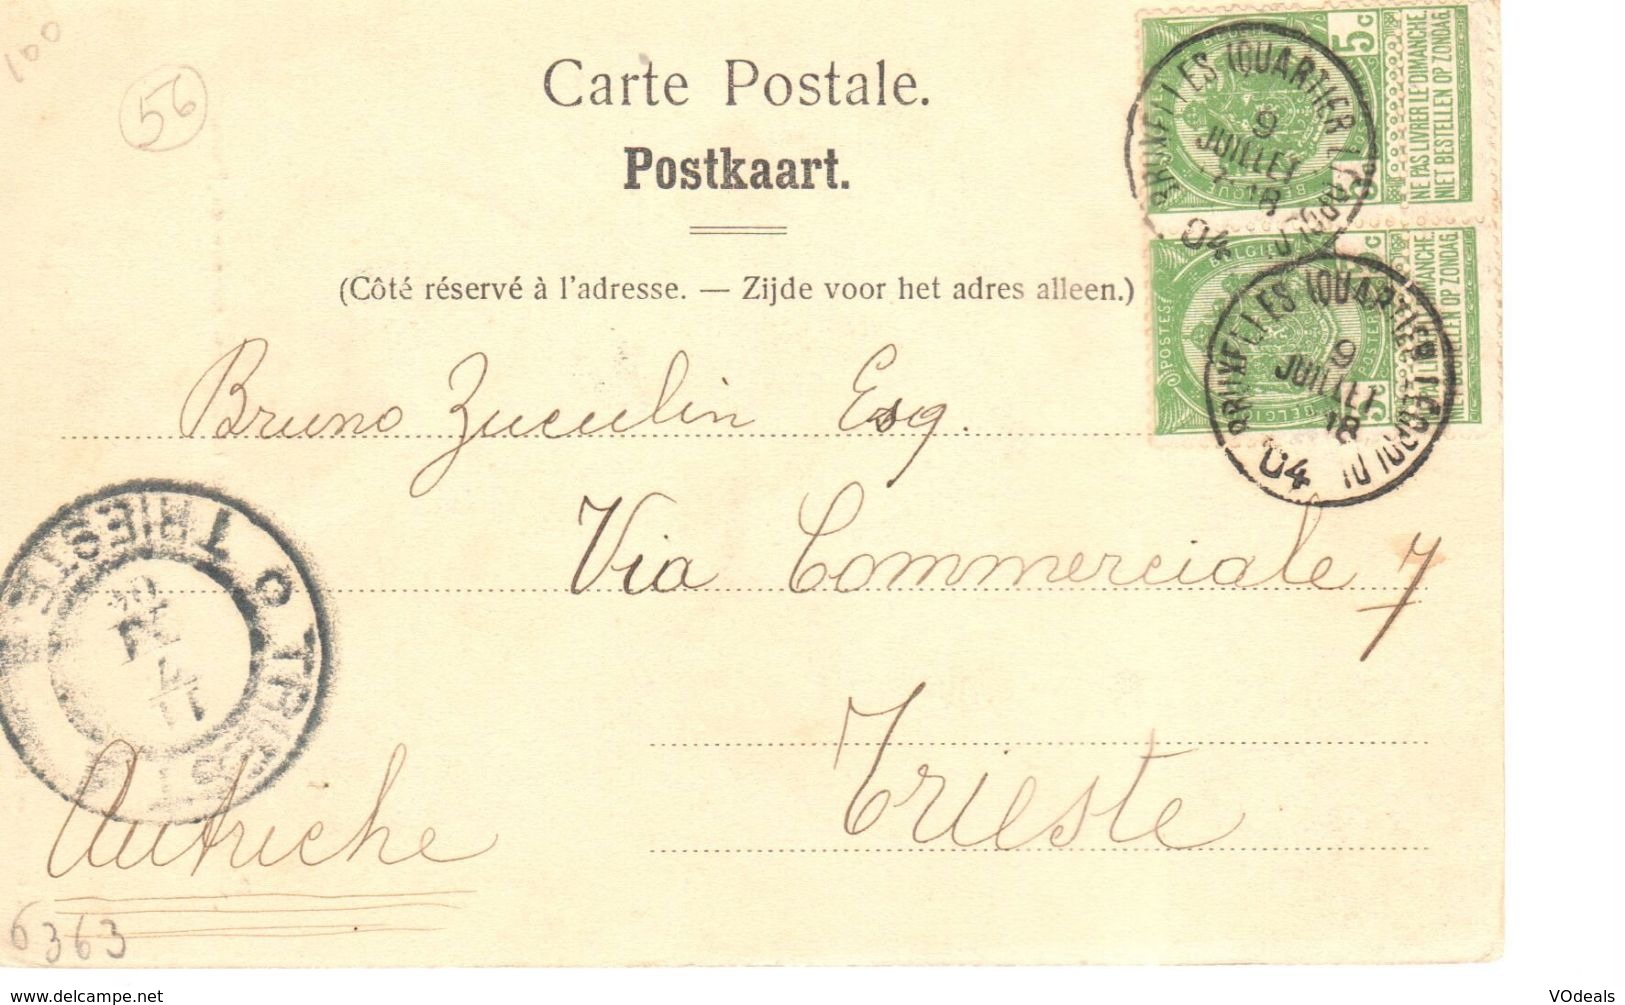 100
56
Carte Postale.
Postkaart.
(Côté réservé à l'adresse. — Zijde voor het adres alleen.)
5c
BELGIQUE
NE PAS LIVRER LE DIMANCHE.
NIET BESTELLEN OP ZONDAG.
BRUXELLES (QUARTIER
9
JUILLET
18
04
5c
POSTES
POSTERIJEN
BELGIQUE
NE PAS LIVRER LE DIMANCHE.
NIET BESTELLEN OP ZONDAG.
BRUXELLES (QUARTIER LÉOPOLD)
9
JUILLET
18
04
Bruno Zuculin Esq.
Via Commerciale 7
Trieste
Autriche
TRIESTE
TRIEST
6363
www.delcampe.net
VOdeals